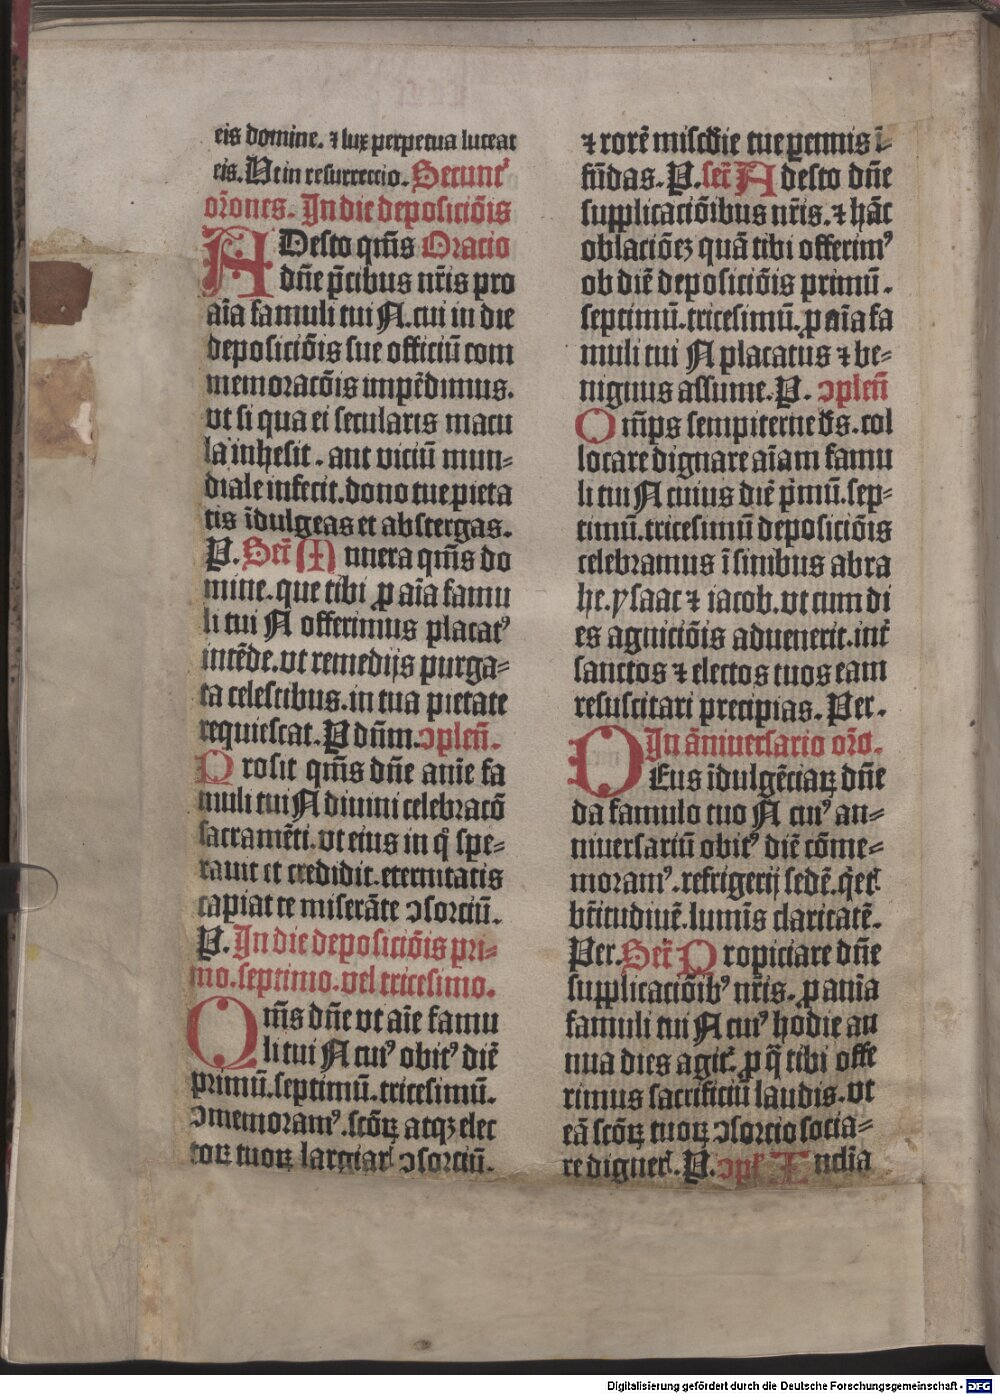 eis domine. ⁊ lux perpetua luceat
eis. Vt in resurrectio. Secunt᷑
or̄ones. In die deposiciōis
ADesto qm̄s Oracio
dn̄e p̄cibus nr̄is pro
aīa famuli tui N. cui in die
deposiciōis sue officiū com
memoracōis impēdimus.
vt si qua ei secularis macu
la inhesit. aut viciū mun⸗
diale infecit. dono tue pieta
tis īdulgeas et abstergas.
P. Secr̄ Munera qm̄s do
mine. que tibi ꝓ aīa famu
li tui N offerimus placatꝰ
intēde. vt remedijs purga⸗
ta celestibus. in tua pietate
requiescat. P dn̄m. ↄplen̄.
Prosit qm̄s dn̄e anīe fa
muli tui N diuini celebracō
sacramēti. vt eius in q̄ spe⸗
rauit et credidit. eternitatis
capiat te miserāte ↄsorciū.
P. In die deposiciōis pri⸗
mo. septimo. vel tricesimo.
Qm̄s dn̄e vt aīe famu
li tui N cuiꝰ obitꝰ diē
primū. septimū. tricesimū.
ↄmemoramꝰ. scōꝝ atqꝫ elec
toꝝ tuoꝝ largiar᷑ ↄsorciū.
⁊ rorē misc͞die tue ꝑennis ī⸗
fūdas. P. secr̄ Adesto dn̄e
supplicaciōibus nr̄is. ⁊ hāc
oblaciōeꝫ quā tibi offerimꝰ
ob diē deposiciōis primū.
septimū. tricesimū. ꝓ aīa fa
muli tui N placatus ⁊ be⸗
nignus assume. P. ↄplen̄
Om̄ps sempiterne ds̄. col
locare dignare aīam famu
li tui N cuius diē pͥmū. sep⸗
timū. tricesimū deposiciōis
celebramus ī sinibus abra
he. ysaac ⁊ iacob. vt cum di
es agniciōis aduenerit. int᷑
sanctos ⁊ electos tuos eam
resuscitari precipias. Per.
In āniuersario or̄o.
DEus īdulgēciaꝝ dn̄e
da famulo tuo N cuiꝰ an⸗
niuersariū obitꝰ diē cōme⸗
moramꝰ. refrigerij sedē. q̄et᷑.
bt̄itudinē. lumīs claritatē.
Per. Secr̄ Propiciare dn̄e
supplicaciōibꝰ nr̄is. ꝓ anīa
famuli tui N cuiꝰ hodie an
nua dies agit᷑. ꝓ q̄ tibi offe
rimus sacrificiū laudis. vt
eā scōꝝ tuoꝝ ↄsorcio socia⸗
re digner᷑. P. ↄpl᷑ Indīa
Digitalisierung gefördert durch die Deutsche Forschungsgemeinschaft - DFG